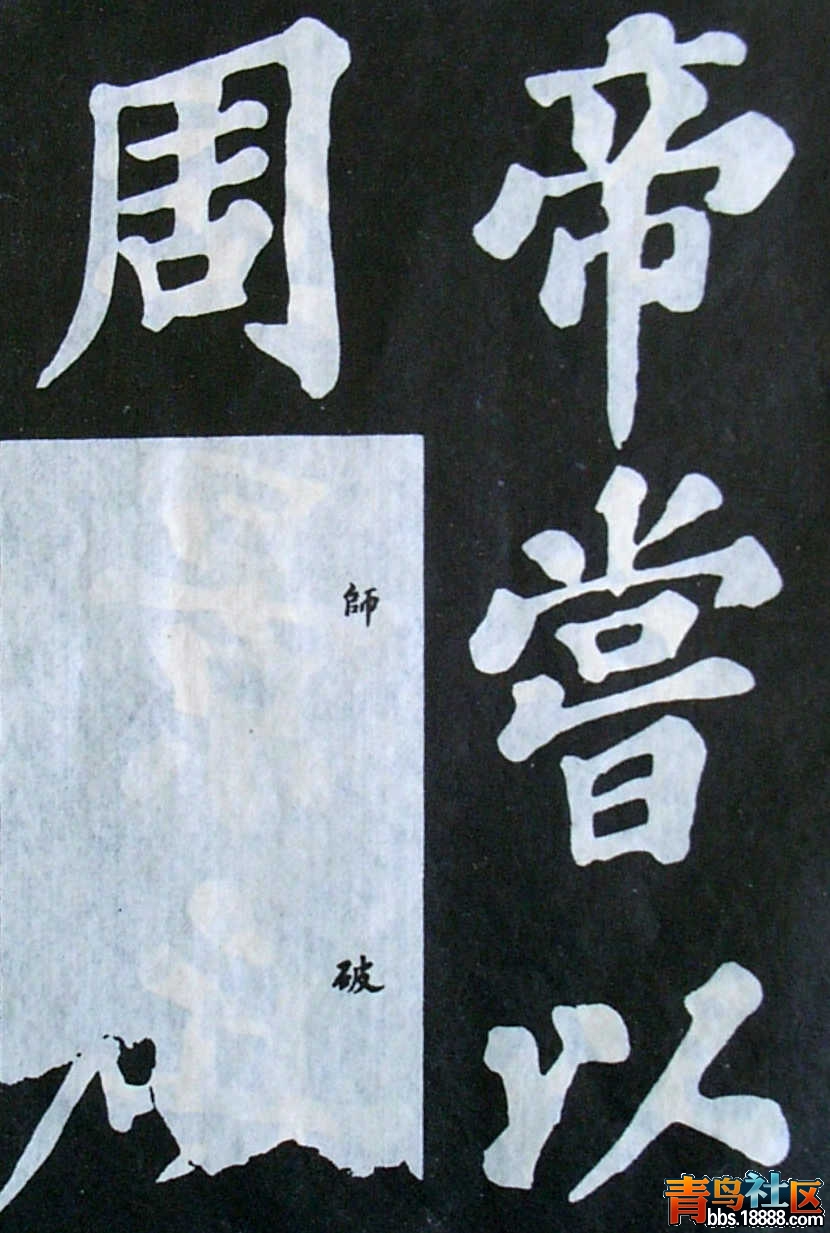 帝嘗以
周
師
破
青鸟社区
bbs.18888.com